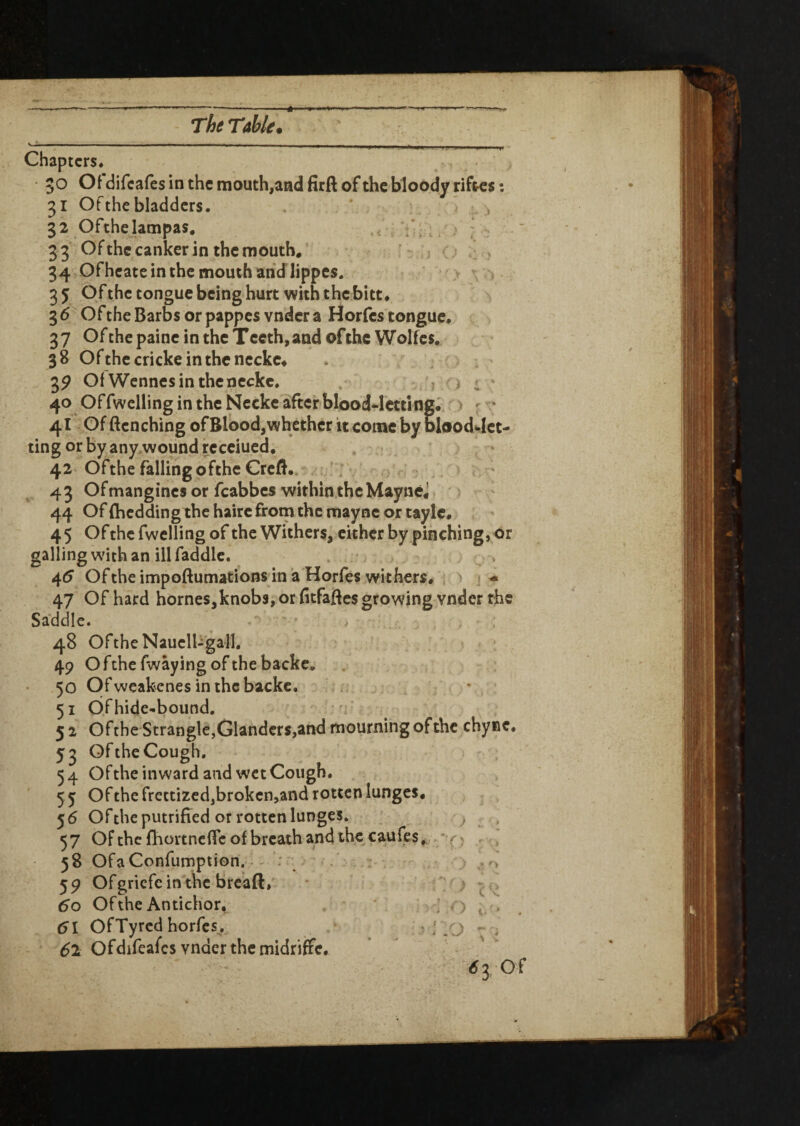 The Table.
Chapters.
30 Of diſeaſes in the mouth, and firſt of the bloody riftes:
31 Of the bladders.
32 Of the lampas.
33 Of the canker in the mouth.
34 Of heate in the mouth and lippes.
35 Of the tongue being hurt with the bitt.
36 Of the Barbs or pappes vnder a Horſes tongue.
37 Of the paine in the Teeth, and of the Wolfes.
38 Of the cricke in the necke.
39 Of Wennes in the necke.
40 Of ſwelling in the Necke after blood-letting.
41 Of ſtenching of Blood, whether it come by blood-let-
ting or by any wound receiued.
42 Of the falling of the Creſt.
43 Of mangines or ſcabbes within the Mayne.
44 Of ſhedding the haire from the mayne or tayle.
45 Of the ſwelling of the Withers, either by pinching, or
galling with an ill ſaddle.
46 Of the impoſtumations in a Horſes withers.
47 Of hard hornes, knobs, or ſitfaſtes growing vnder the
Saddle.
48 Of the Nauell-gall.
49 Of the ſwaying of the backe.
50 Of weakenes in the backe.
51 Of hide-bound.
52 Of the Strangle, Glanders, and mourning of the chyne.
53 Of the Cough.
54 Of the inward and wet Cough.
55 Of the frettized, broken, and rotten lunges.
56 Of the putrified or rotten lunges.
57 Of the ſhortneſſe of breath and the cauſes.
58 Of a Conſumption.
59 Of griefe in the breaſt.
60 Of the Antichor.
61 Of Tyred horſes.
62 Of diſeaſes vnder the midriffe.
63 Of